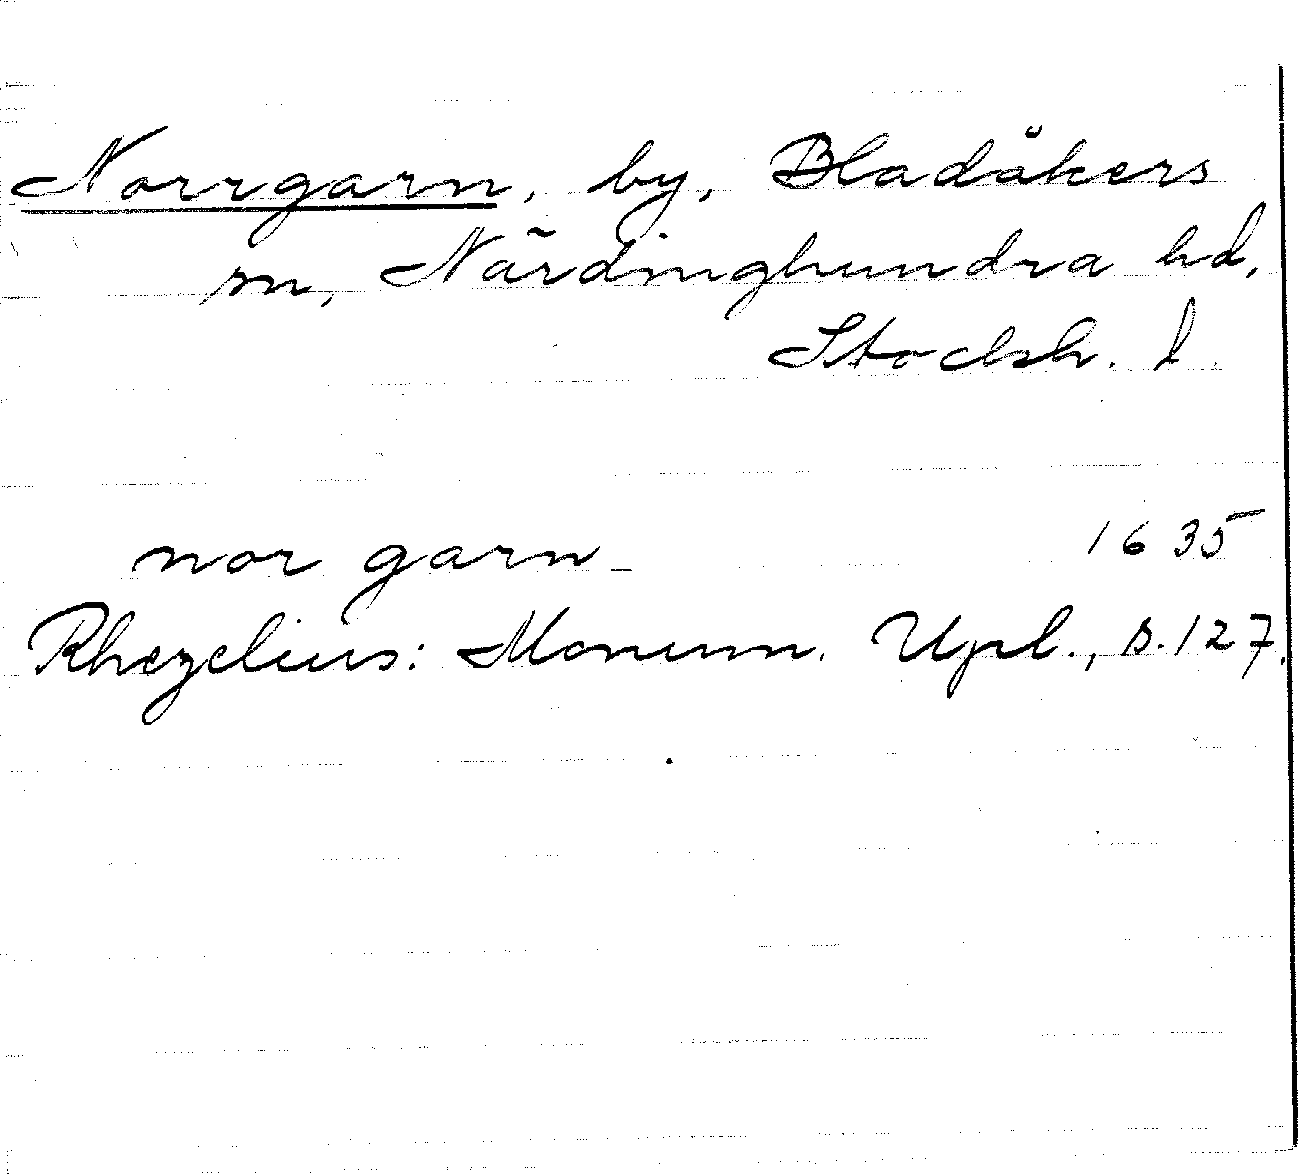 Norrgarn, by, Bladåkers
sn, Närdinghundra hd,
Stocksh. l.
nor garn_ 1635
Rhezelius: Monum. Upl., s. 127.